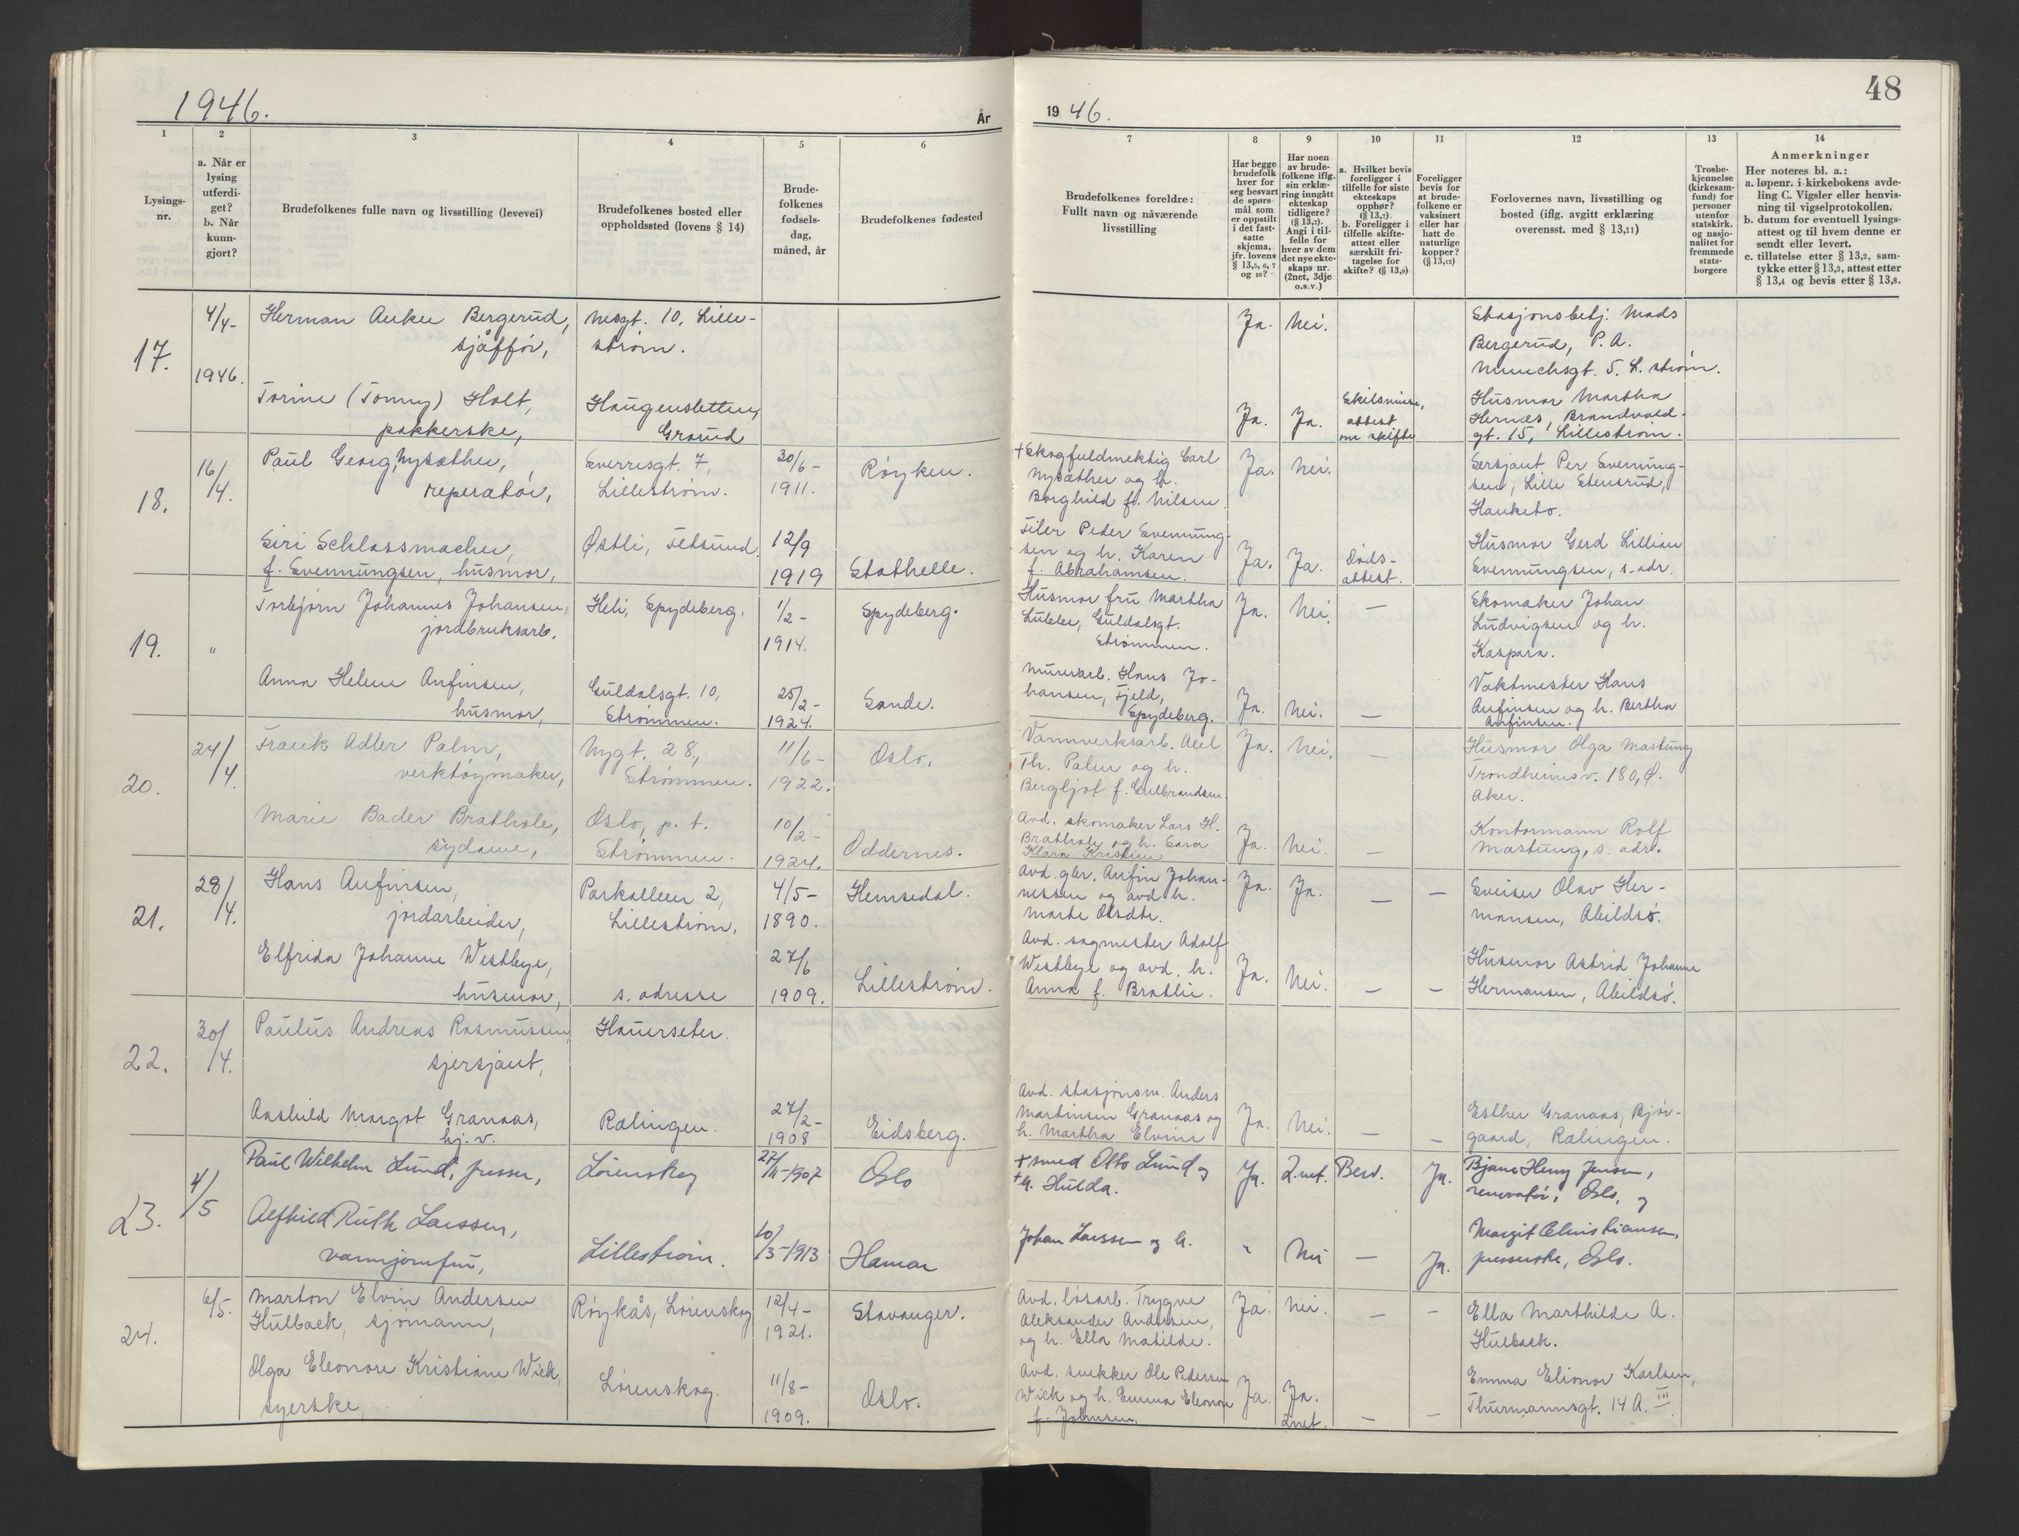 1946.
År
1
2
3
4
5
6
Lysings-
nr.
a. Når er
lysing
utferdi-
get?
b. Når
kunn-
gjort?
Brudefolkenes fulle navn og livsstilling (levevei)
Brudefolkenes bosted eller
oppholdssted (lovens § 14)
Brude-
folkenes
fødsels-
dag,
måned, år
Brudefolkenes fødested
17.
4/4-
1946.
Herman Anker Bergerud,
sjåffør,
Nesgt. 10, Lille-
strøm.
Torine (Tonny) Holt,
pakkerske,
Haugensletten,
Grorud
18.
16/4.
Paul Georg Nysæther,
reperatør,
Sverresgt. 7,
Lillestrøm.
30/6-
1911.
Røyken.
Siri Schlossmacher,
f. Svennungsen, husmor,
Østli, Fetsund.
12/9
1919
Stathelle.
19.
"
Torbjørn Johannes Johansen,
jordbruksarb.
Heli, Spydeberg.
1/2-
1914.
Spydeberg.
Anna Helene Anfinsen,
husmor,
Guldalsgt. 10,
Strømmen.
25/2-
1924.
Sande.
20.
24/4.
Frank Adler Palm,
verktøymaker,
Nygt. 28,
Strømmen.
11/6-
1922.
Oslo.
Marie Bader Brathole,
sydame,
Oslo, p. t.
Strømmen.
10/2-
1924.
Oddernes.
21.
28/4.
Hans Anfinsen,
jordarbeider,
Parkalleen 2,
Lillestrøm.
4/5-
1890.
Hemsedal.
Elfrida Johanne Westbye,
husmor,
s. adresse
27/6
1909.
Lillestrøm.
22.
30/4.
Paulus Andreas Rasmussen,
sjersjant,
Hauerseter.
Aashild Margot Granaas,
hj. v.
Rælingen.
27/2-
1908
Eidsberg.
23.
4/5
Paul Wilhelm Lund, presser,
Lørenskog
27/11-1907
Oslo
Alfhild Ruth Larssen,
Lillestrøm.
10/3-1913
Hamar
24.
6/5.
Marton Elvin Andersen
Hulback, sjømann,
Røykås, Lørenskog
12/4-
1921.
Stavanger.
Olga Eleonore Kristiane Wick,
syerske,
Lørenskog.
11/8-
1909.
Oslo.
48
1946.
7
8
9
10
11
12
13
14
Brudefolkenes foreldre:
Fullt navn og nåværende
livsstilling
Har begge
brudefolk
hver for
seg besvart
de spørs-
mål som
er oppstilt
i det fast-
satte
skjema,
jfr. lovens
§ 13,5, 6, 7
og 10?
Har noen
av brude-
folkene iflg.
sin erklæ-
ring inngått
ekteskap
tidligere?
(§ 13,7).
Angi i til-
felle for
hver av dem
det nye ekte-
skaps nr.
(2net, 3dje
o.s.v.)
a. Hvilket bevis
foreligger i
tilfelle for siste
ekteskaps
opphør?
(§ 13,7)
b. Foreligger i
tilfelle skifte-
attest eller
særskilt fri-
tagelse for
skifte? (§ 13,9)
Foreligger
bevis for
at brude-
folkene er
vaksinert
eller har
hatt de
naturlige
kopper?
(§ 13,12)
Forlovernes navn, livsstilling og
bosted (iflg. avgitt erklæring
overensst. med § 13,11)
Trosbe-
kjennelse
(kirkesam-
fund) for
personer
utenfor
statskirk.
og nasjo-
nalitet for
fremmede
stats-
borgere
Anmerkninger
Her noteres bl. a.:
a. løpenr. i kirkebokens avde-
ling C. Vigsler eller henvis-
ning til vigselprotokollen.
b. datum for eventuell lysings-
attest og til hvem denne er
sendt eller levert.
c. tillatelse etter § 13,2, sam-
tykke etter § 13,3, attest etter
§ 13,4 og bevis etter § 13,8.
Ja. Nei.
Stasjonsbetj. Mads
Bergerud, P. A.
Munchsgt. 5. L. strøm.
Ja. Ja.
Skilsmisse,
attest
om skifte
Husmor Martha
Hernæs, Brandvold-
gt. 15, Lillestrøm.
+ Skogfuldmektig Carl
Nysæther og h.
Borghild f. Nilsen.
Ja. Nei.
Sersjant Per Svennung-
sen, Lille Stensrud,
Hauketo.
Filer Peder Svennung-
sen og h. Karen
f. Abrahamsen.
Ja. Ja.
Døds-
attest.
Husmor Gerd Lillian
Svennungsen, s. adr.
Husmor fru Martha
Lubbe, Guldalsgt.
Strømmen.
Ja. Nei. —
Skomaker Johan
Ludvigsen og h.
Kaspara.
Murerarb. Hans Jo-
hansen, Fjeld,
Spydeberg.
Ja. Nei. —
Vaktmester Hans
Anfinsen og h. Bertha
Anfinsen.
Vannverksarb. Axel
Th. Palm og h.
Bergljot f. Gulbrandsen.
Ja. Nei.
Husmor Olga Mastung
Trondheimsv. 180, Ø.
Aker.
Avd. skomaker Lars H.
Brathole og h. Sara
Klara Kristine
Ja. Nei. —
Kontormann Rolf
Mastung, s. adr.
Avd. gbr. Anfin Johan-
nessen og avd. h.
Marte Olsdtr.
Ja. Ja. — —
Sveiser Olav Her-
mansen, Abildsø.
Avd. sagmester Adolf
Westbye og avd. h.
Anna f. Bratlie.
Ja. Nei. — —
Husmor Astrid Johanne
Hermansen, Abildsø.
Avd. stasjonsm. Anders
Martinsen Granaas og
h. Martha Elvine
Ja. Nei. — —
Esther Granaas, Bjør-
gaard, Rælingen.
+ smed Otto Lund og
+ h. Hulda.
Ja. 2net. Bev. Ja.
Bjarne Henry Jensen,
Oslo, og
Johan Larssen og h.
" Nei — Ja.
Margit Christiansen,
presserske, Oslo.
Avd. løsarb. Trygve
Aleksander Andersen,
og h. Ella Matilde.
Ja. Nei. — —
Ella Marthilde A.
Hulback.
Avd. snekker Ole Pedersen
Wick og h. Emma Eleonore
f. Johnsen.
Ja. Ja.
2net. — —
Emma Elionor Karlsen,
Thurmannsgt. 14 A. III